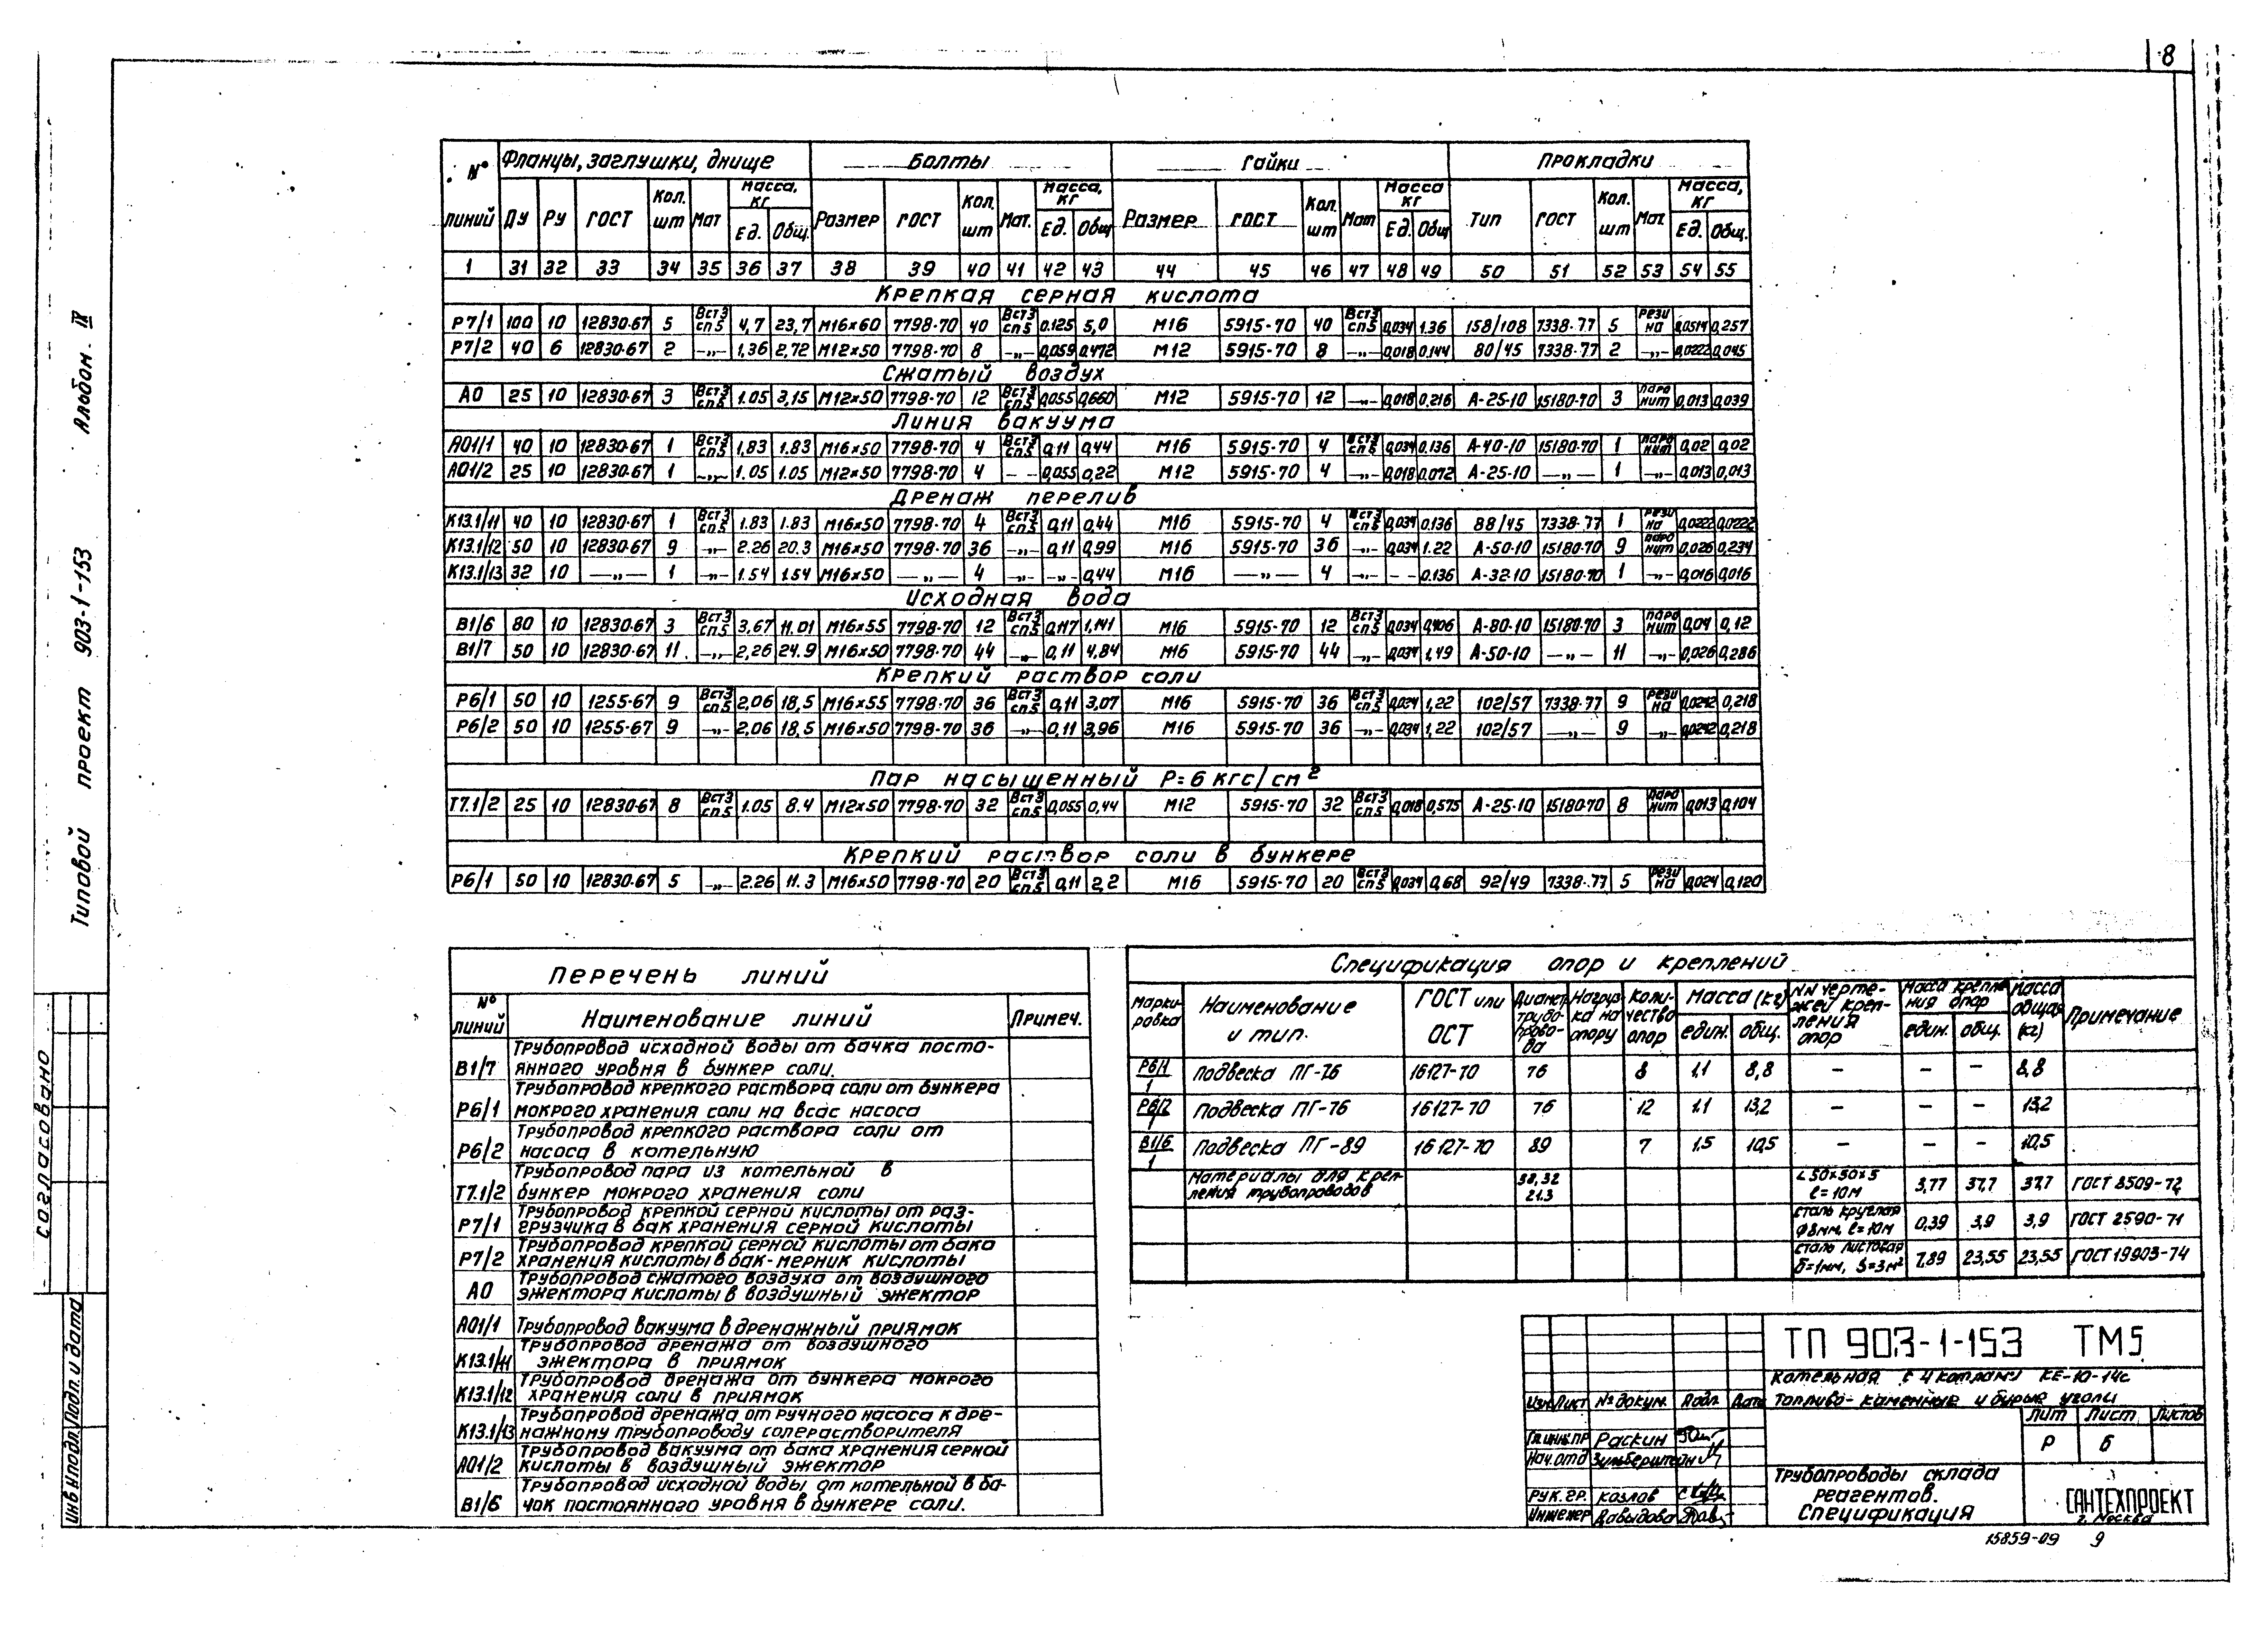 8
Типовой проект 903-1-153 Альбом IX
Согласовано
Инв.Nподл. Подп. и дата
N° линий | Фланцы, заглушки, днище | Болты | Гайки | Прокладки
Ду | Ру | ГОСТ | Кол. шт | Мат | Масса, кг Ед. Общ. | Размер | ГОСТ | Кол. шт | Мат. | Масса, кг Ед. Общ | Размер | ГОСТ | Кол. шт | Мат | Масса кг Ед. Общ | Тип | ГОСТ | Кол. шт | Мат. | Масса, кг Ед. Общ.
1 | 31 | 32 | 33 | 34 | 35 | 36 | 37 | 38 | 39 | 40 | 41 | 42 | 43 | 44 | 45 | 46 | 47 | 48 | 49 | 50 | 51 | 52 | 53 | 54 | 55
Крепкая серная кислота
Р7/1 | 100 | 10 | 12830-67 | 5 | Вст3 сп5 | 4,7 | 23,7 | М16×60 | 7798-70 | 40 | Вст3 сп5 | 0.125 | 5,0 | М16 | 5915-70 | 40 | Вст3 сп5 | 0,034 | 1.36 | 158/108 | 7338-77 | 5 | рези на | 0,0514 | 0,257
Р7/2 | 40 | 6 | 12830-67 | 2 | —„— | 1,36 | 2,72 | М12×50 | 7798-70 | 8 | —„— | 0,059 | 0.472 | М12 | 5915-70 | 8 | —„— | 0,018 | 0.144 | 80/45 | 7338-77 | 2 | —„— | 0,0222 | 0,045
Сжатый воздух
А0 | 25 | 10 | 12830-67 | 3 | Вст3 сп5 | 1.05 | 3,15 | М12×50 | 7798-70 | 12 | Вст3 сп5 | 0,055 | 0,660 | М12 | 5915-70 | 12 | —„— | 0,018 | 0.216 | А-25-10 | 15180-70 | 3 | паро нит | 0,013 | 0,039
Линия вакуума
А01/1 | 40 | 10 | 12830-67 | 1 | Вст3 сп5 | 1,83 | 1.83 | М16×50 | 7798-70 | 4 | Вст3 сп5 | 0,11 | 0,44 | М16 | 5915-70 | 4 | Вст3 сп5 | 0,034 | 0.136 | А-40-10 | 15180-70 | 1 | паро нит | 0,02 | 0,02
А01/2 | 25 | 10 | 12830-67 | 1 | —„— | 1.05 | 1.05 | М12×50 | 7798-70 | 4 | - - | 0,055 | 0,22 | М12 | 5915-70 | 4 | —„— | 0,018 | 0.072 | А-25-10 | —„— | 1 | —„— | 0,013 | 0,013
Дренаж перелив
К13.1/11 | 40 | 10 | 12830-67 | 1 | Вст3 сп5 | 1.83 | 1.83 | М16×50 | 7798-70 | 4 | Вст3 сп5 | 0,11 | 0,44 | М16 | 5915-70 | 4 | Вст3 сп5 | 0,034 | 0.136 | 88/45 | 7338-77 | 1 | рези на | 0,0222 | 0,0222
К13.1/12 | 50 | 10 | 12830-67 | 9 | —„— | 2.26 | 20.3 | М16×50 | 7798-70 | 36 | —„— | 0,11 | 0,99 | М16 | 5915-70 | 36 | —„— | 0,034 | 1.22 | А-50-10 | 15180-70 | 9 | паро нит | 0,026 | 0,234
К13.1/13 | 32 | 10 | —„— | 1 | —„— | 1.54 | 1.54 | М16×50 | —„— | 4 | —„— | —„— | 0,44 | М16 | —„— | 4 | —„— | - - | 0.136 | А-32-10 | 15180-70 | 1 | —„— | 0,016 | 0,016
Исходная вода
В1/6 | 80 | 10 | 12830-67 | 3 | Вст3 сп5 | 3,67 | 11.01 | М16×55 | 7798-70 | 12 | Вст3 сп5 | 0,117 | 1,141 | М16 | 5915-70 | 12 | Вст3 сп5 | 0,034 | 0,406 | А-80-10 | 15180-70 | 3 | паро нит | 0,04 | 0,12
В1/7 | 50 | 10 | 12830-67 | 11 | —„— | 2,26 | 24.9 | М16×50 | 7798-70 | 44 | —„— | 0,11 | 4,84 | М16 | 5915-70 | 44 | —„— | 0,034 | 1,49 | А-50-10 | —„— | 11 | —„— | 0,026 | 0,286
Крепкий раствор соли
Р6/1 | 50 | 10 | 1255-67 | 9 | Вст3 сп5 | 2,06 | 18,5 | М16×55 | 7798-70 | 36 | Вст3 сп5 | 0,11 | 3,07 | М16 | 5915-70 | 36 | Вст3 сп5 | 0,034 | 1,22 | 102/57 | 7338-77 | 9 | рези на | 0,0242 | 0,218
Р6/2 | 50 | 10 | 1255-67 | 9 | —„— | 2,06 | 18,5 | М16×50 | 7798-70 | 36 | —„— | 0,11 | 3,96 | М16 | 5915-70 | 36 | —„— | 0,034 | 1,22 | 102/57 | —„— | 9 | —„— | 0,0242 | 0,218
Пар насыщенный Р=6 кгс/см²
Т7.1/2 | 25 | 10 | 12830-67 | 8 | Вст3 сп5 | 1.05 | 8.4 | М12×50 | 7798-70 | 32 | Вст3 сп5 | 0,055 | 0,44 | М12 | 5915-70 | 32 | Вст3 сп5 | 0,018 | 0,575 | А-25-10 | 15180-70 | 8 | паро нит | 0,013 | 0,104
Крепкий раствор соли в бункере
Р6/1 | 50 | 10 | 12830-67 | 5 | —„— | 2.26 | 11.3 | М16×50 | 7798-70 | 20 | Вст3 сп5 | 0,11 | 2,2 | М16 | 5915-70 | 20 | Вст3 сп5 | 0,034 | 0,68 | 92/49 | 7338-77 | 5 | рези на | 0,024 | 0,120
Перечень линий
N° линий | Наименование линий | Примеч.
В1/7 Трубопровод исходной воды от бачка посто-
янного уровня в бункер соли.
Р6/1 Трубопровод крепкого раствора соли от бункера
мокрого хранения соли на всас насоса
Р6/2 Трубопровод крепкого раствора соли от
насоса в котельную
Т7.1/2 Трубопровод пара из котельной в
бункер мокрого хранения соли
Р7/1 Трубопровод крепкой серной кислоты от раз-
грузчика в бак хранения серной кислоты
Р7/2 Трубопровод крепкой серной кислоты от бака
хранения кислоты в бак-мерник кислоты
А0 Трубопровод сжатого воздуха от воздушного
эжектора кислоты в воздушный эжектор
А01/1 Трубопровод вакуума в дренажный приямок
К13.1/11 Трубопровод дренажа от воздушного
эжектора в приямок
К13.1/12 Трубопровод дренажа от бункера мокрого
хранения соли в приямок
К13.1/13 Трубопровод дренажа от ручного насоса к дре-
нажному трубопроводу солерастворителя
А01/2 Трубопровод вакуума от бака хранения серной
кислоты в воздушный эжектор
В1/6 Трубопровод исходной воды от котельной в ба-
чок постоянного уровня в бункере соли.
Спецификация опор и креплений
Марки-ровка | Наименование и тип. | ГОСТ или ОСТ | Диамет. трубо-прово-да | Нагруз-ка на опору | Коли-чество опор | Масса (кг) един. общ. | NN черте-жей креп-ления опор | Масса крепле-ния опор един. общ. | Масса общая (кг) | Примечание
Р6/1 1 | Подвеска ПГ-76 | 16127-70 | 76 | 8 | 1.1 | 8,8 | — | — | — | 8,8
Р6/2 1 | Подвеска ПГ-76 | 16127-70 | 76 | 12 | 1.1 | 13,2 | — | — | — | 13,2
В1/6 1 | Подвеска ПГ-89 | 16127-70 | 89 | 7 | 1.5 | 10,5 | — | — | — | 10,5
Материалы для креп-ления трубопроводов | 38,32 21.3 | ∠50×50×5 ℓ=10м | 3,77 | 37,7 | 37,7 | ГОСТ 8509-72
сталь круглая ф8мм, ℓ=10м | 0,39 | 3,9 | 3,9 | ГОСТ 2590-71
сталь листовая δ=1мм, S=3м² | 7,89 | 23,55 | 23,55 | ГОСТ 19903-74
ТП 903-1-153 ТМ5
Котельная с 4 котлами КЕ-10-14с
Топливо-каменные и бурые угли
Изм Лист №докум. Подп. Дата
Гл.инж.пр Раскин
Нач.отд Зильберштейн
Рук.гр. Козлов
Инженер Давыдова
Лит Лист Листов
Р 6
Трубопроводы склада
реагентов.
Спецификация
САНТЕХПРОЕКТ
г. Москва
15859-09 9